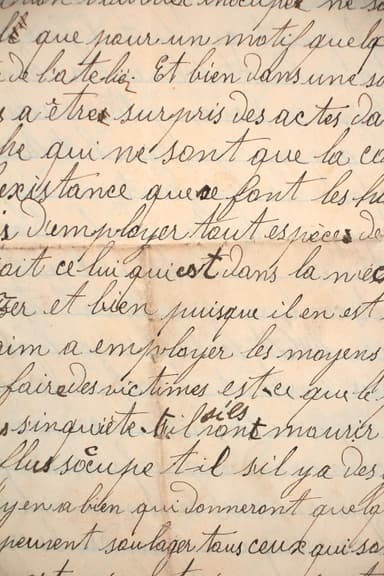 que pour un motif quelq
de l'atelier Et bien dans une so
a être surpris des actes da
he qui ne sont que la co
existance que se font les h
d'employer tout espèces de
ait celui qui est dans la néc
er et bien puisque il en est
aim a employer les moyens
faire des victimes est-ce que le
s'inquiète t-il s'ils vont mourir
Plus s'ocupe t il s'il ya des
y en a bien qui donneront quelq
peuvent soulager tous ceux qui so